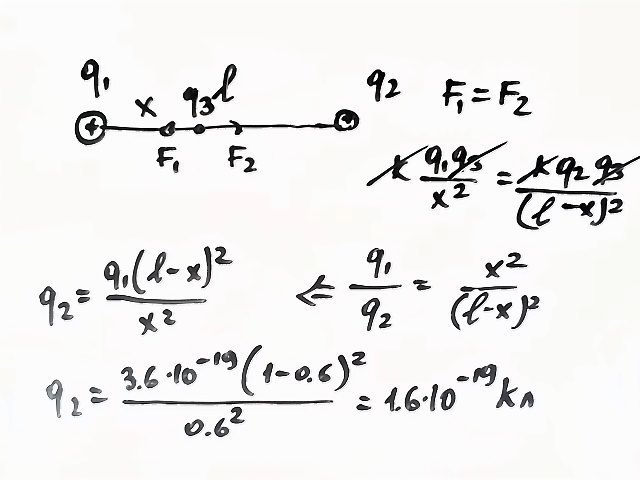 q₁ x q₃ l q₂ F₁ = F₂
+ F₁ F₂
k q₁q₃ / x² = k q₂ q₃ / (l - x)²
q₂ = q₁(l - x)² / x² ⇐ q₁ / q₂ = x² / (l - x)²
q₂ = 3.6 · 10⁻¹⁹ (1 - 0.6)² / 0.6² = 1.6 · 10⁻¹⁹ Кл